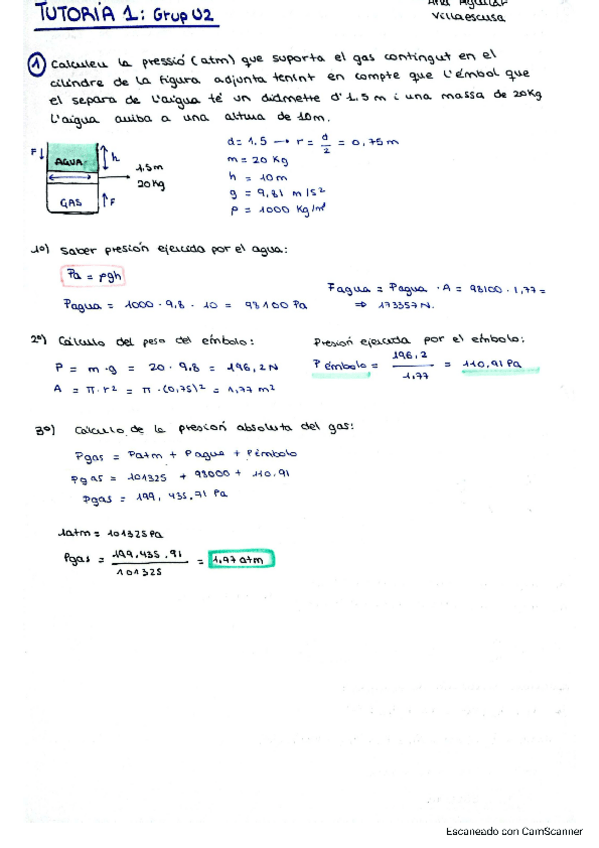 TUTORÍA 1: Grup U2
Villaescusa
1 Calculeu la pressió (atm) que suporta el gas contingut en el
cilindre de la figura adjunta tenint en compte que l'émbol que
el separa de l'aigua té un diámetre d'1.5m i una massa de 20Kg
L'aigua arriba a una altura de 10m.
d = 1.5 → r = d/2 = 0,75m
m = 20 Kg
h = 10m
g = 9,81 m/s²
ρ = 1000 Kg/m³
F↓ AGUA h
1,5m
20Kg
GAS ↑F
1º) Saber presión ejercida por el agua:
Pa = ρgh
Pagua = 1000 · 9,8 · 10 = 98100 Pa
Fagua = Pagua · A = 98100 · 1,77 =
⇒ 173357N.
2º) Cálculo del peso del émbolo:
P = m·g = 20 · 9,8 = 196,2N
A = π·r² = π · (0,75)² = 1,77 m²
Presión ejercida por el émbolo:
P émbolo = 196,2/1,77 = 110,91 Pa
3º) Calculo de la presión absoluta del gas:
Pgas = Patm + Pagua + Pémbolo
Pgas = 101325 + 98000 + 110.91
Pgas = 199,435.91 Pa
1atm = 101325Pa
Pgas = 199.435.91/101325 = 1,97 atm
Escaneado con CamScanner